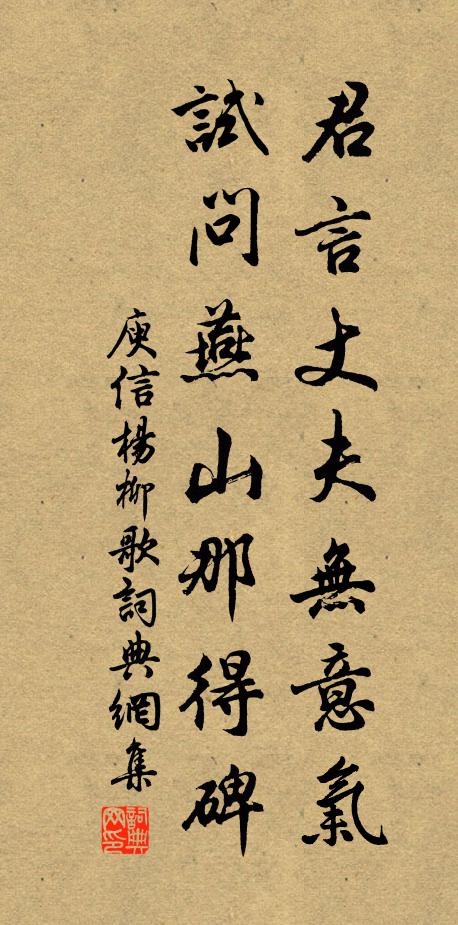 君言丈夫無意氣
試問燕山那得碑
庾信楊柳歌詞典網集
詞典网印